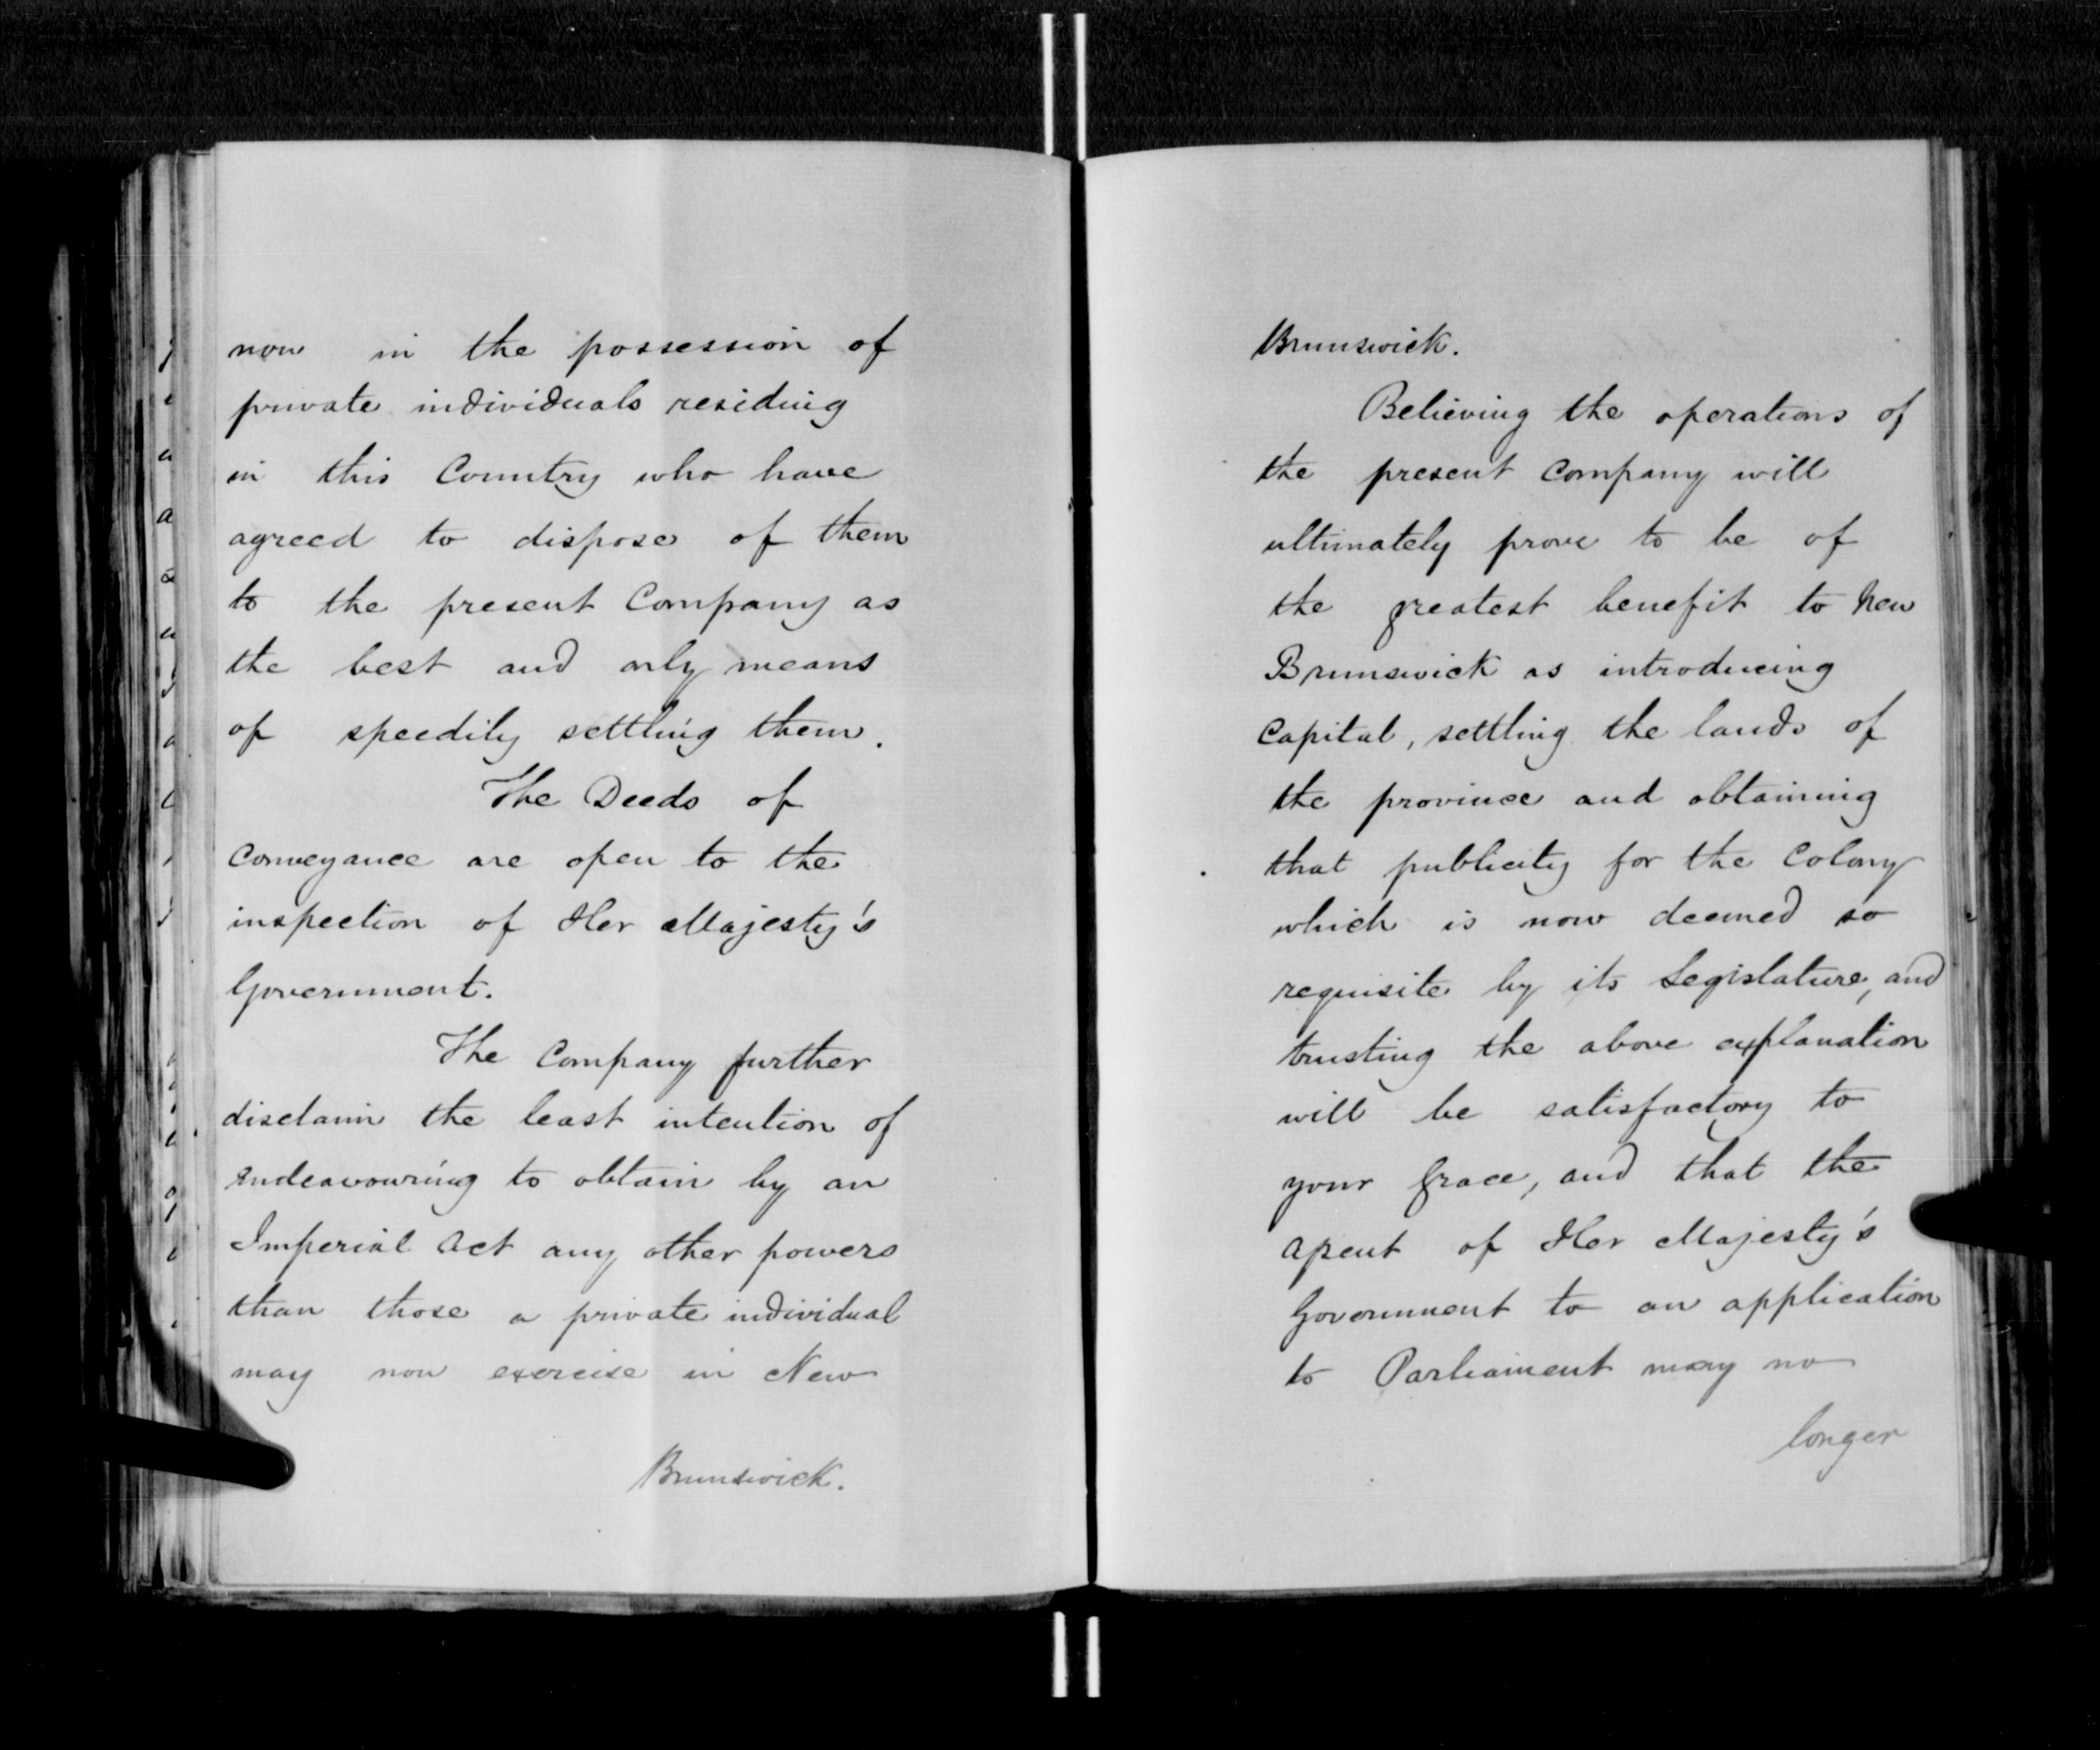 now in the possession of
private individuals residing
in this Country who have
agreed to dispose of them
to the present Company as
the best and only means
of speedily settling them.
The Deeds of
Conveyance are open to the
inspection of Her Majesty's
Government.
The Company further
disclaim the least intention of
endeavouring to obtain by an
Imperial Act any other powers
than those a private individual
may now exercise in New
Brunswick.
Brunswick.
Believing the operations of
the present Company will
ultimately prove to be of
the greatest benefit to New
Brunswick as introducing
Capital, settling the lands of
the province and obtaining
that publicity for the Colony
which is now deemed so
requisite by its Legislature, and
trusting the above explanation
will be satisfactory to
your Grace, and that the
assent of Her Majesty's
Government to an application
to Parliament may no
longer